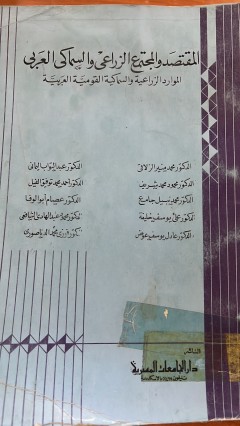 المقتصد والمجتمع الزراعى والسماكى العربى
الموارد الزراعية والسماكية القومية العربية
الدكتور محمد منير الزلاقى
الدكتور محمود محمد شريف
الدكتور محمد نبيل جامع
الدكتور على يوسف خليفة
الدكتور عادل يوسف عوض
الدكتور عبد الوهاب
الدكتور أحمد محمد توفيق الفيل
الدكتور عصام أبو الوفا
الدكتور محمد عبد الهادى
الدكتور فوزى
الناشر
دار الجامعات المصرية